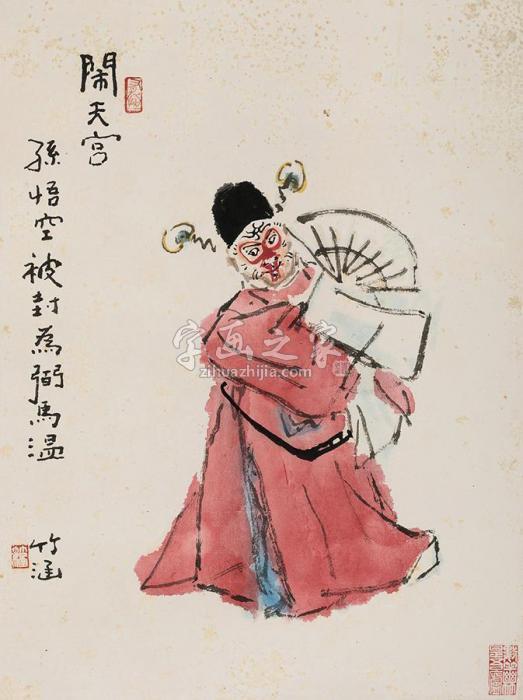 鬧天宮
孫悟空被封為弼馬温
竹涵
字画之家
zihuazhijia.com